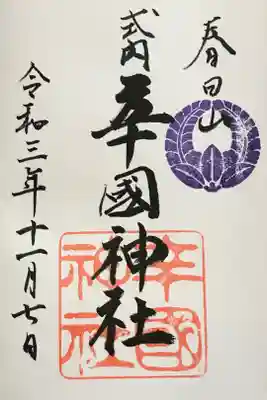 春日山
式内
辛國神社
令和三年十一月七日
辛國
神社